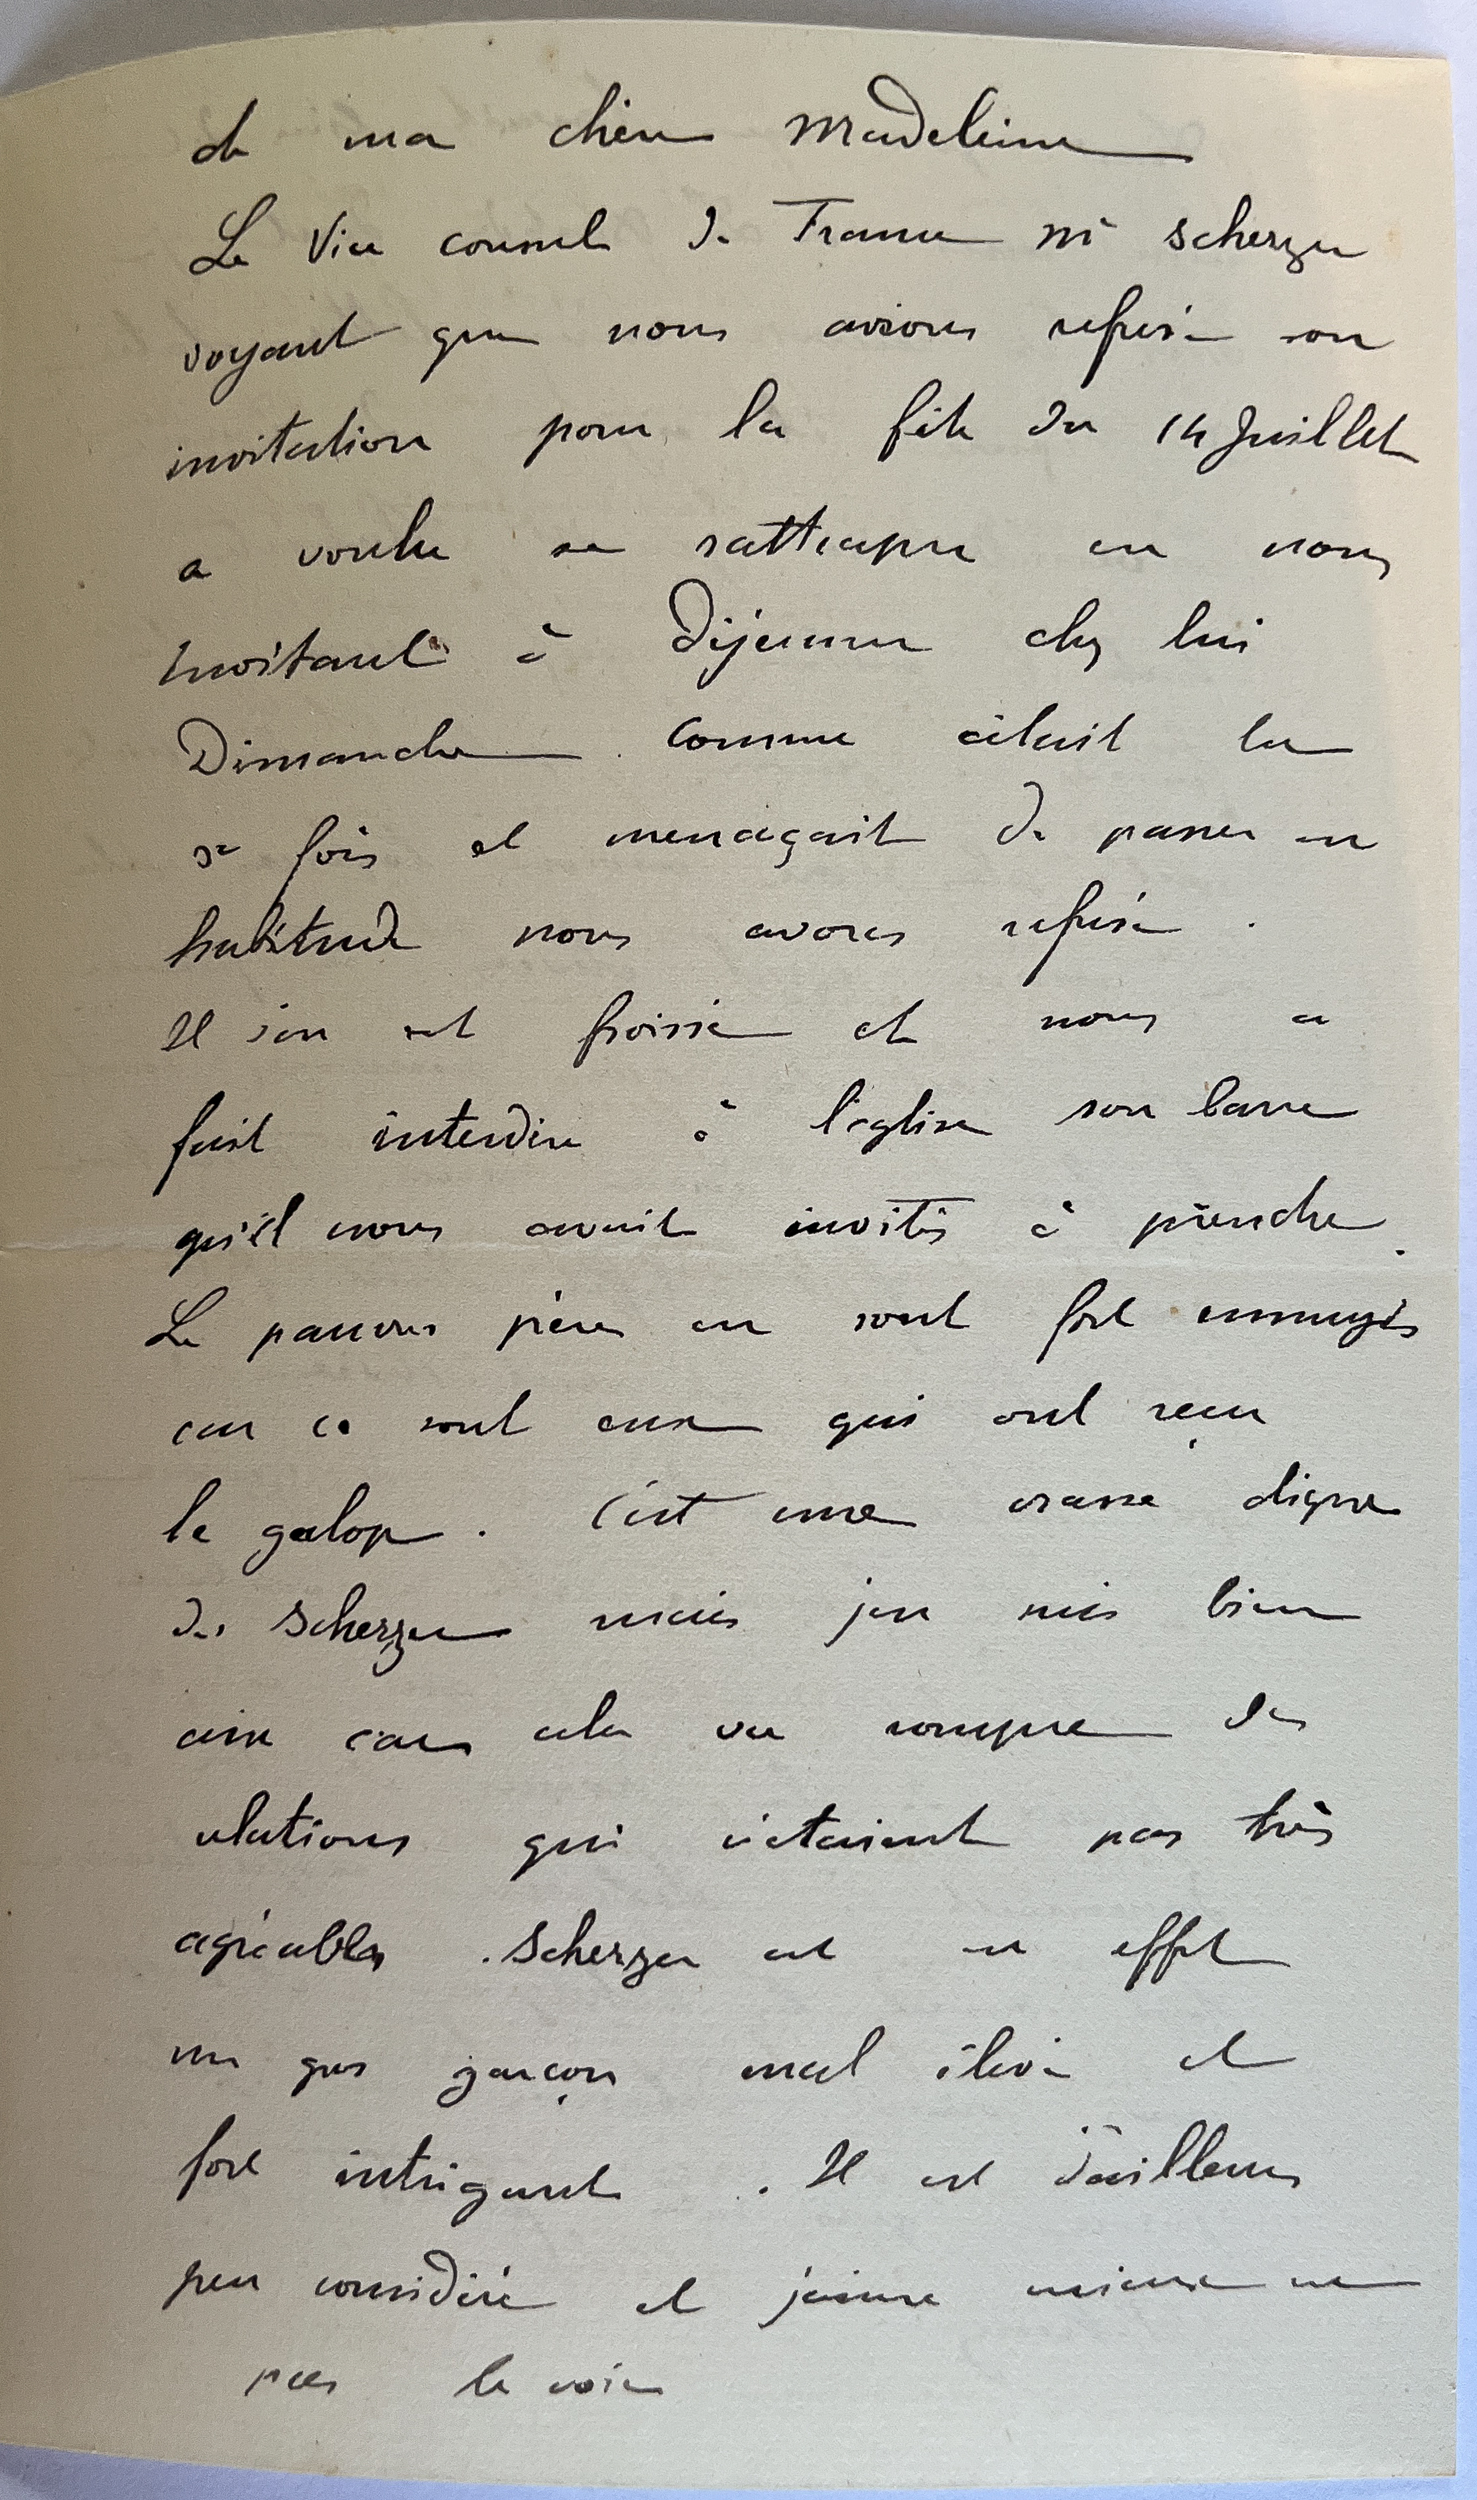 de ma chère Madeleine
Le Vice consul de France Mr Scherzer
voyant que nous avions refusé son
invitation pour la fête du 14 Juillet
a voulu se rattraper en nous
invitant à déjeuner chez lui
Dimanche. Comme c'était la
3e fois et menaçait de passer en
habitude nous avons refusé.
Il s'en est froissé et nous a
fait interdire à l'église son banc
qu'il nous avait invités à prendre.
Le pauvres pères en sont fort ennuyés
car ce sont eux qui ont reçu
le galop. C'est une crasse digne
de Scherzer mais j'en suis bien
aise car cela va rompre des
relations qui n'étaient pas très
agréables. Scherzer est en effet
un gros garçon mal élevé et
fort intrigant. Il est d'ailleurs
peu considéré et j'aime mieux ne
pas le voir